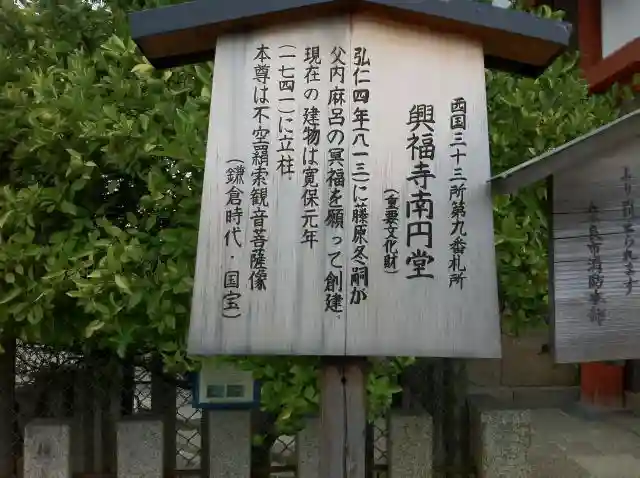 西国三十三所第九番札所
興福寺南円堂
(重要文化財)
弘仁四年(八一三)に藤原冬嗣が
父内麻呂の冥福を願って創建。
現在の建物は寛保元年
(一七四一)に立柱。
本尊は不空羂索観音菩薩像
(鎌倉時代・国宝)
奈良市消防本部